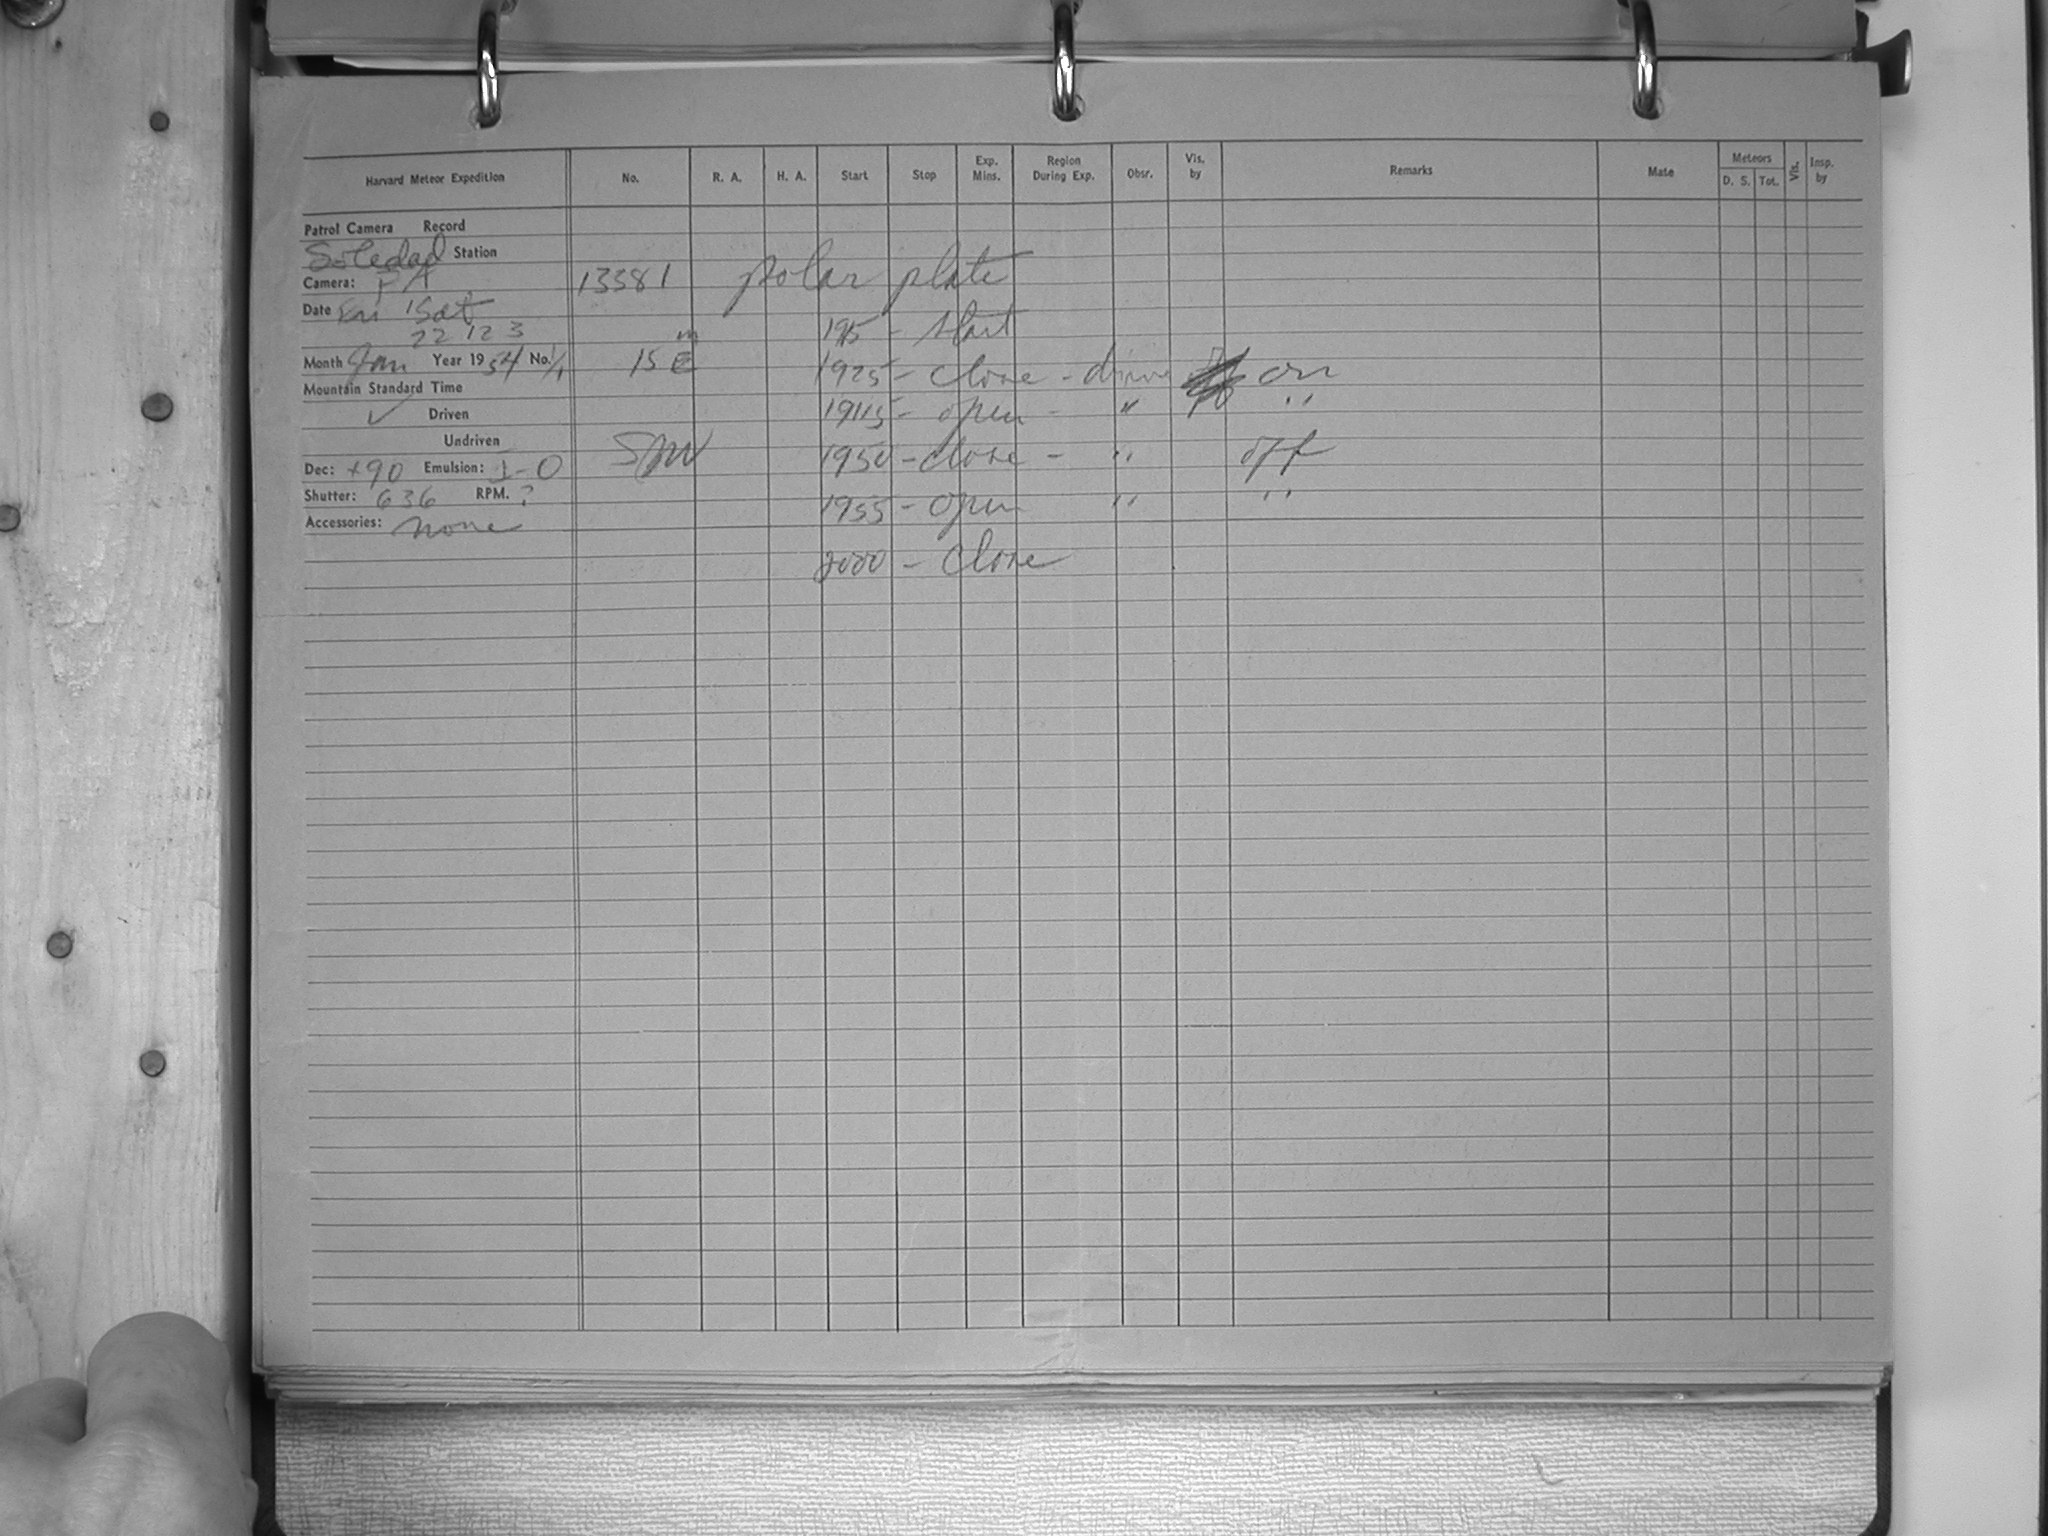 Harvard Meteor Expedition No. R. A. H. A. Start Stop Exp. Mins. Region During Exp. Obsr. Vis. by Remarks Mate Meteors D. S. Tot. Vis. Insp. by
Patrol Camera Record
Soledad Station
Camera: FA 13381 polar plate
Date Fri Sat
22 12 3 - start
Month Jan Year 1954 No. 1/1 15 E m 1925 - close - drive on
Mountain Standard Time
✓ Driven - open - " "
Undriven
Dec: +90 Emulsion: I-O 1950 - close - " off
Shutter: 636 RPM. ? 1955 - open " "
Accessories: none
2000 - close